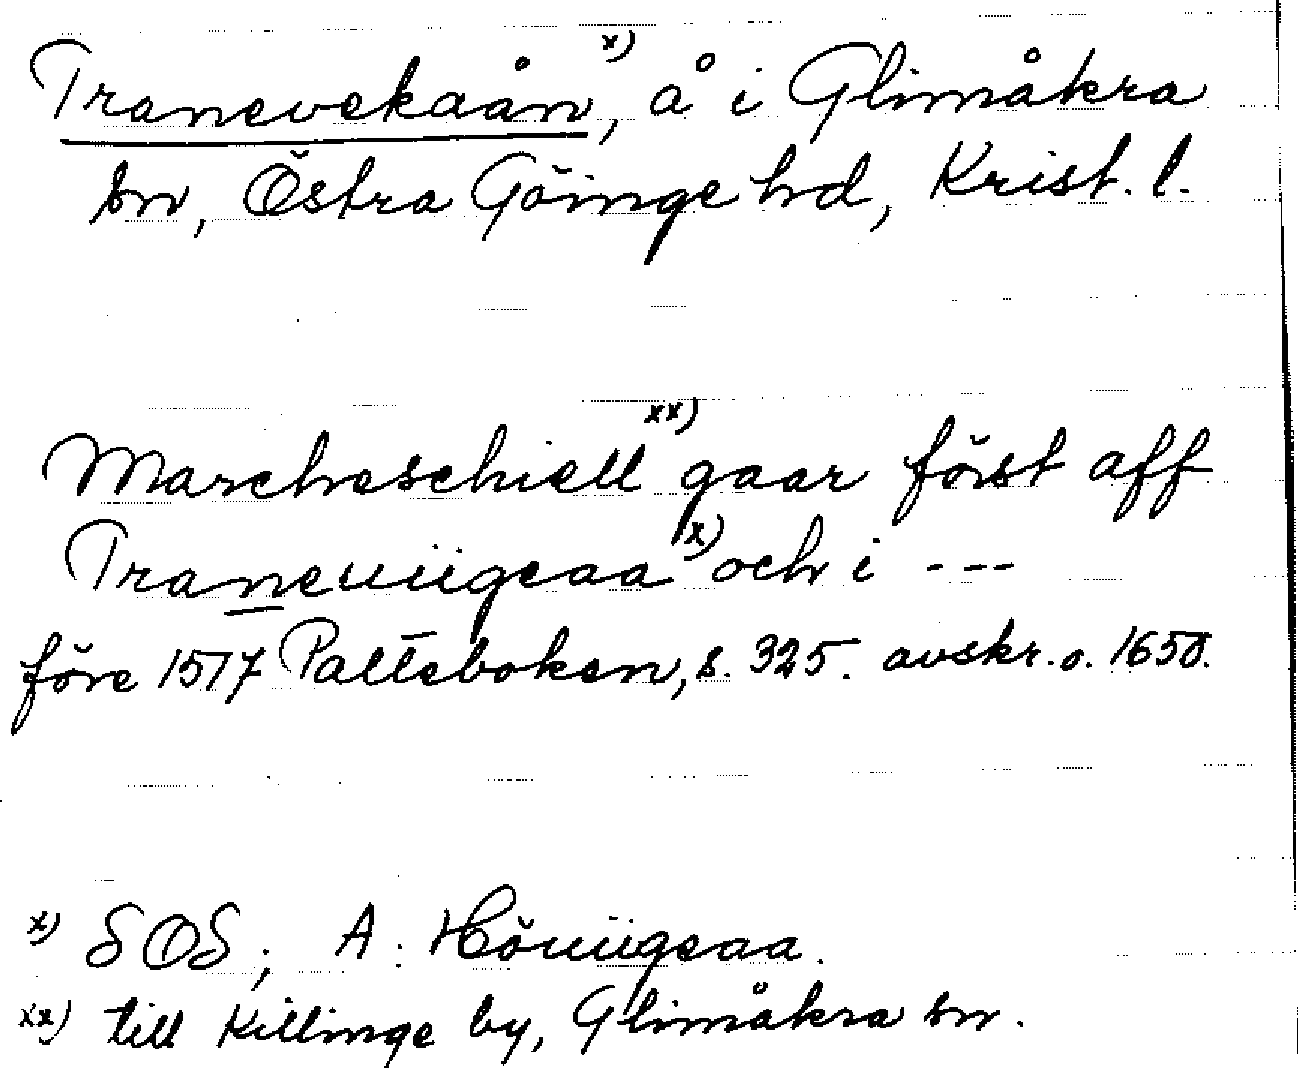 Tranevekaån x), å i Glimåkra
sn, Östra Göinge hd, Krist. l.
Marcheschiell xx) gaar först aff
Traneuiigeaa x) och i ---
före 1517 Palteboken, s. 325. avskr. o. 1650.
x) SOS; A: Höuiigeaa.
xx) till Killinge by, Glimåkra sn.